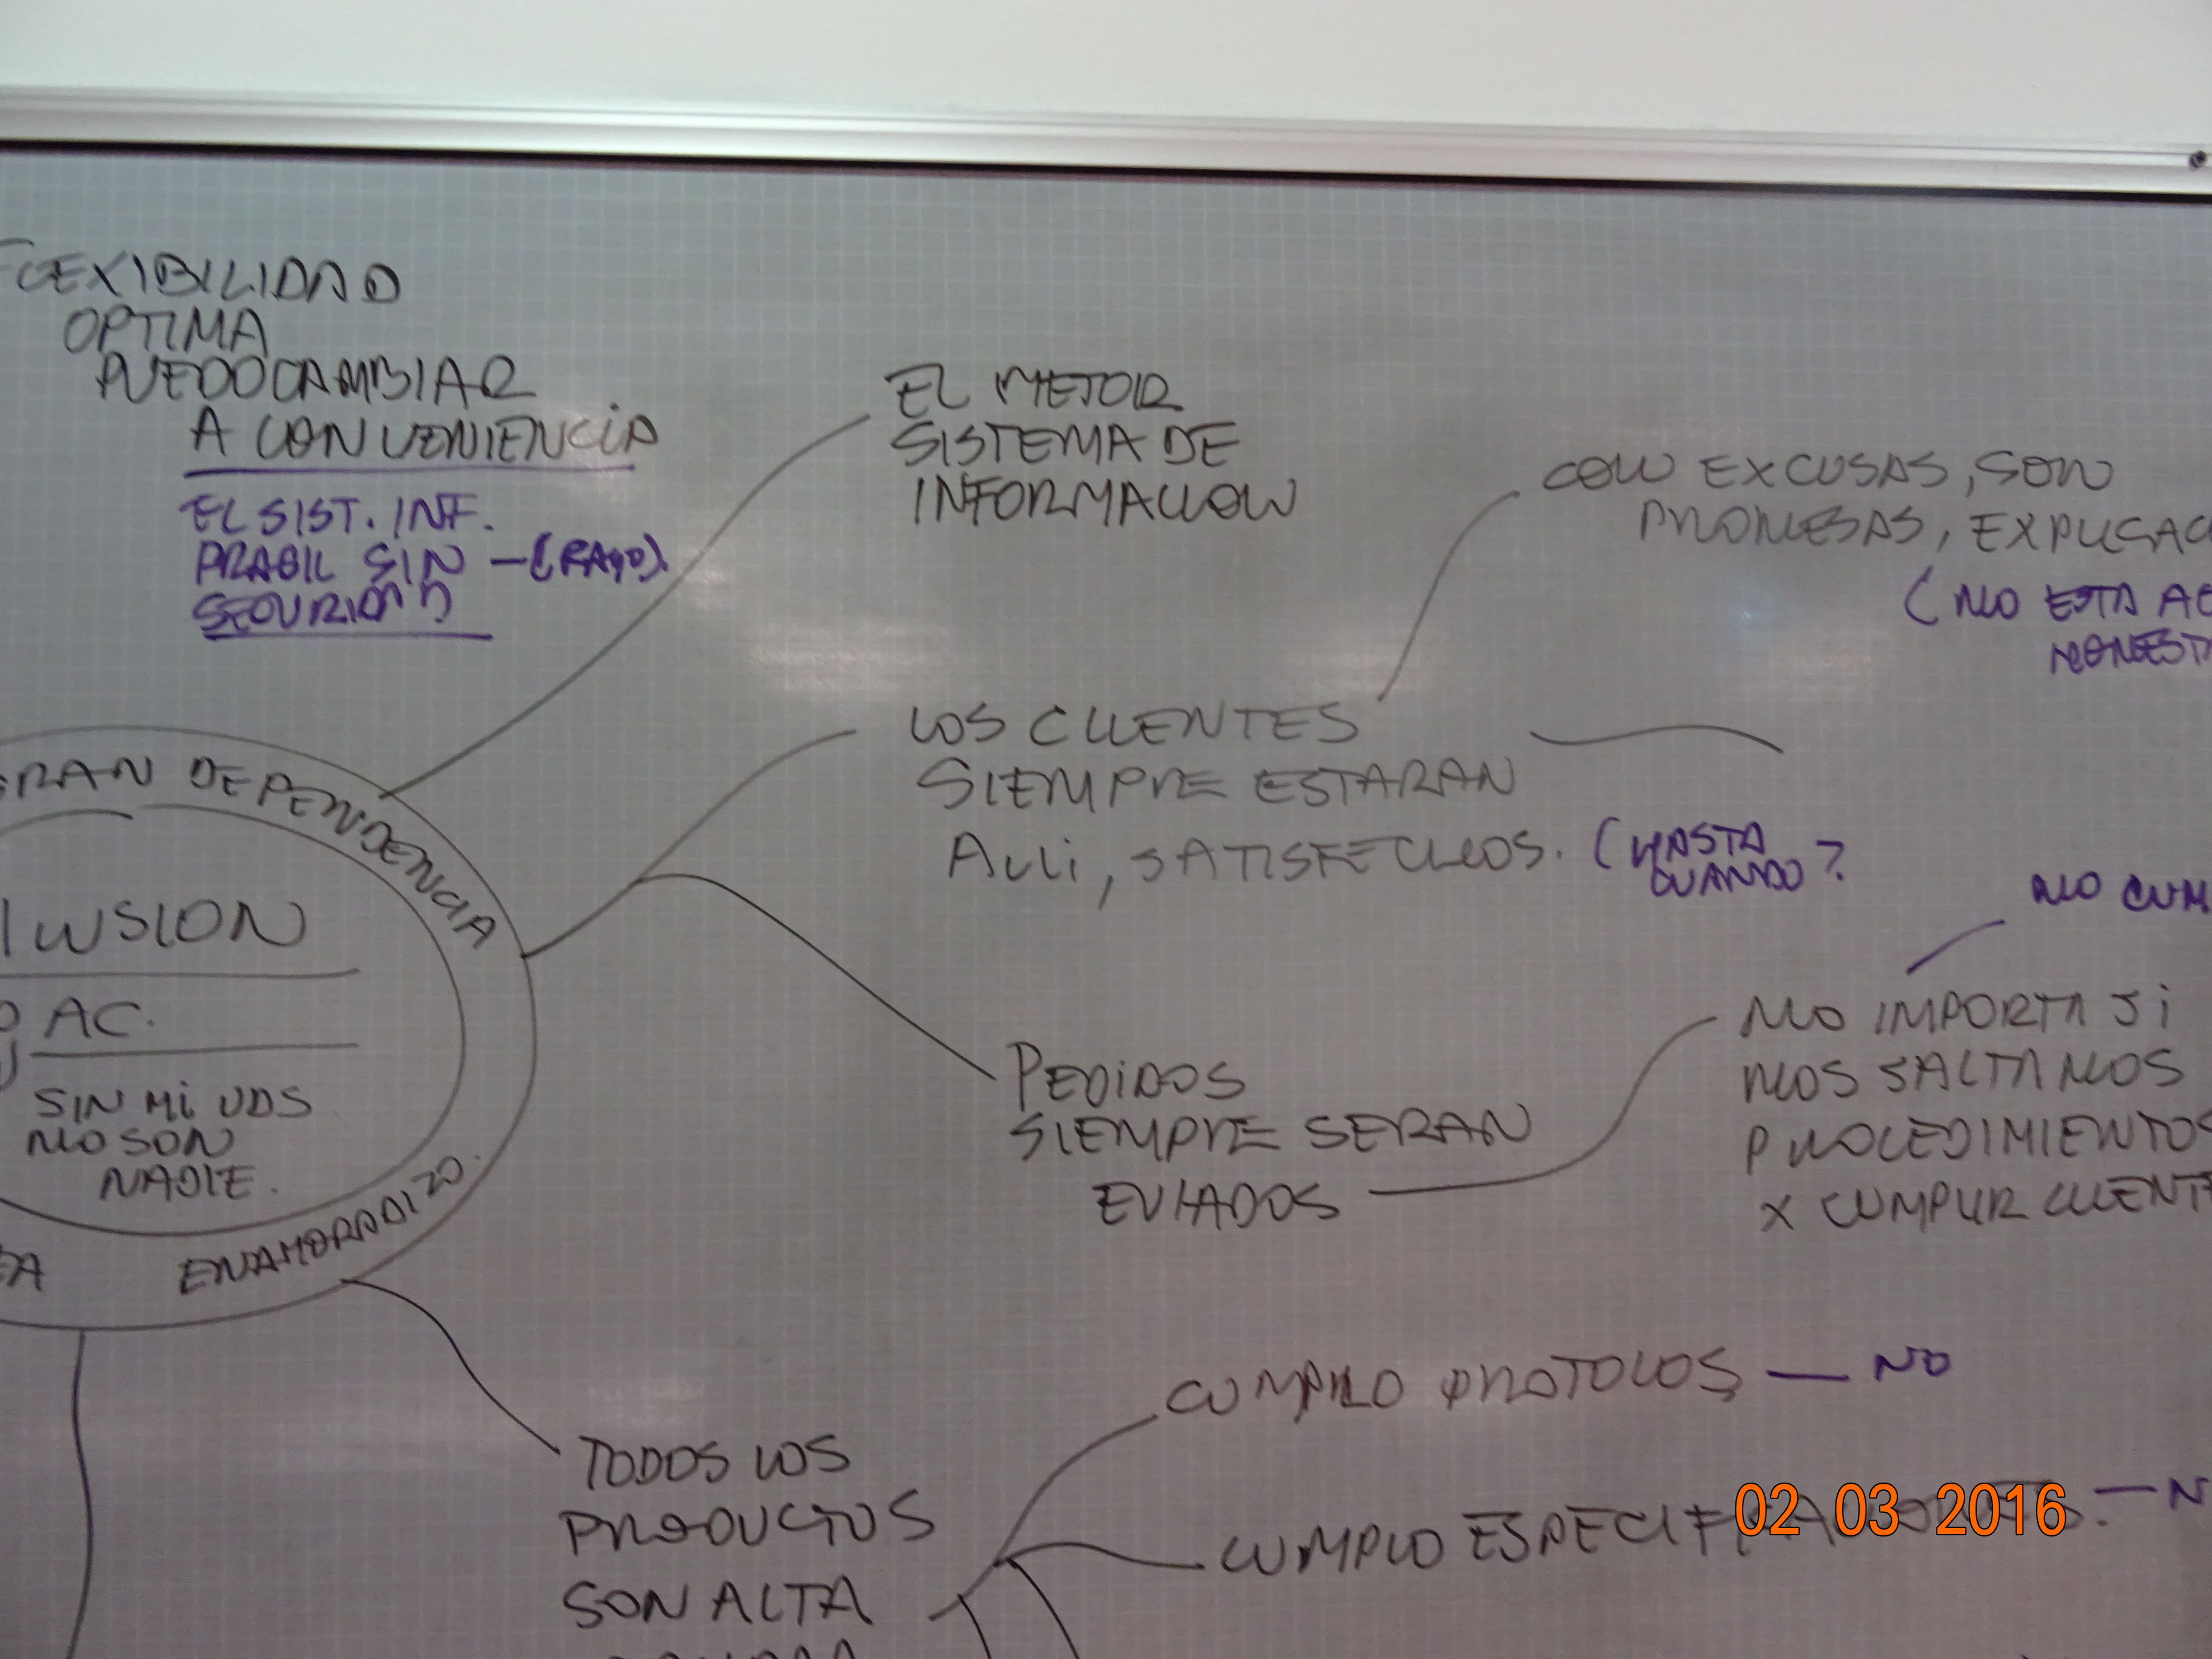 FLEXIBILIDAD
OPTIMA
PUEDO CAMBIAR
A CONVENIENCIA
EL SIST. INF.
FRAGIL SIN
SEGURIDAD
EL MEJOR
SISTEMA DE
INFORMACION
CON EXCUSAS, SON
PROMESAS, EXPLICAC
(NO ESTA AC
LOS CLIENTES
SIEMPRE ESTARAN
ALLI, SATISFECHOS. (HASTA
CUANDO?
GRAN DEPENDENCIA
ILUSION
AC.
SIN MI UDS
NO SON
NADIE.
EA ENAMORADIZO.
PEDIDOS
SIEMPRE SERAN
ENVIADOS
NO CUM
NO IMPORTA SI
NOS SALTAMOS
PROCEDIMIENTOS
X CUMPLIR CLIENT
TODOS LOS
PRODUCTOS
SON ALTA
CUMPLO PROTOLOS — NO
CUMPLO ESPECIFICACIONES. — N
02 03 2016